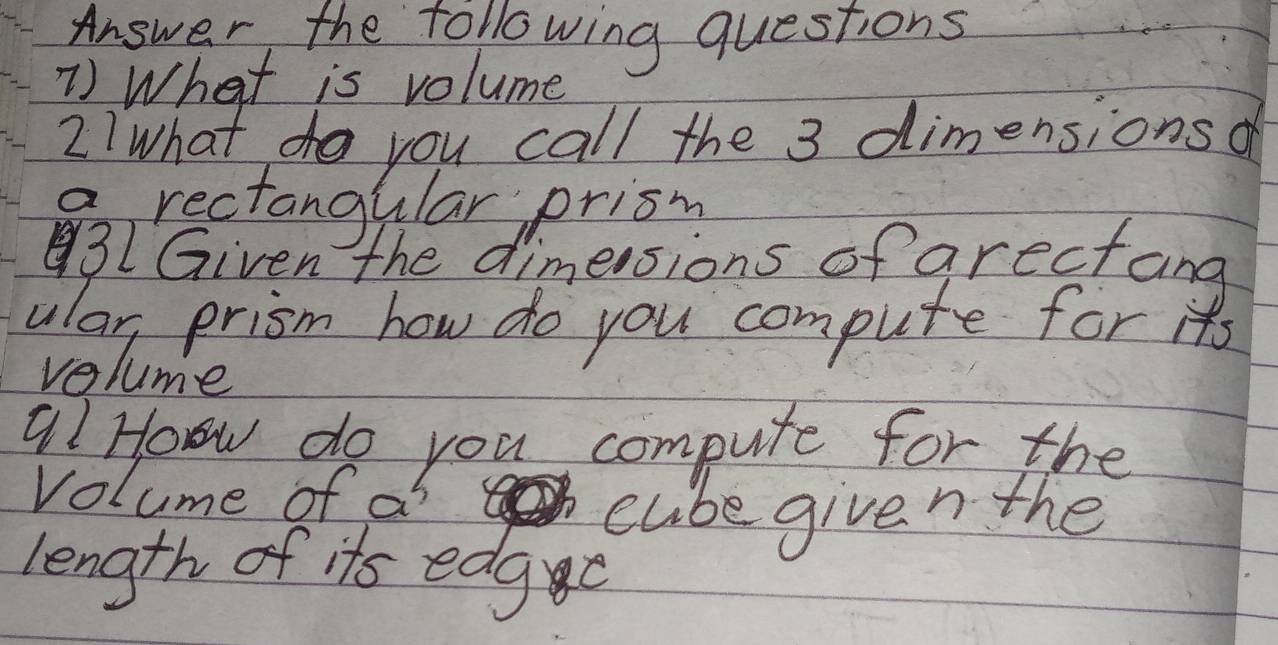 Answer the following questions
1) What is volume
2) What do you call the 3 dimensions of
a rectangular prism
3) Given the dimensions of a rectang
ular prism how do you compute for its
volume
4) How do you compute for the
Volume of a cube given the
length of its edge